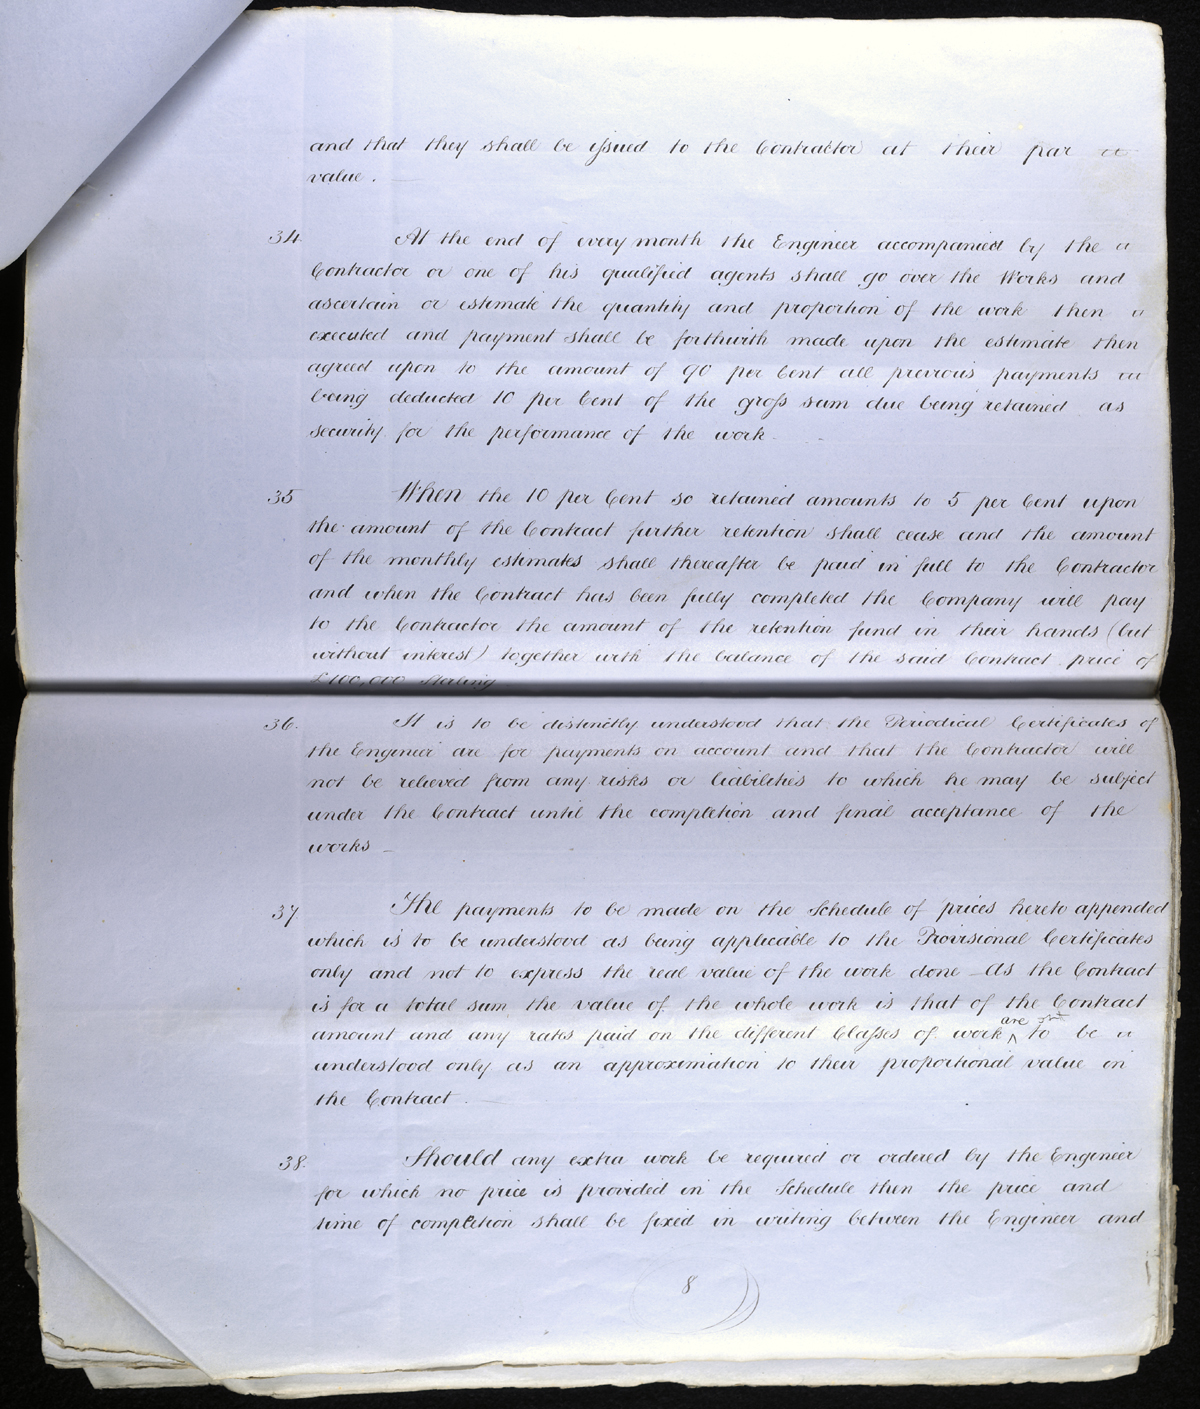 and that they shall be issued to the Contractor at their par
value.
34. At the end of every month the Engineer accompanied by the
Contractor or one of his qualified agents shall go over the Works and
ascertain or estimate the quantity and proportion of the work then
executed and payment shall be forthwith made upon the estimate then
agreed upon to the amount of 90 per Cent all previous payments
being deducted 10 per Cent of the gross sum due being retained as
security for the performance of the work.
35 When the 10 per Cent so retained amounts to 5 per Cent upon
the amount of the Contract further retention shall cease and the amount
of the monthly estimates shall thereafter be paid in full to the Contractor
and when the Contract has been fully completed the Company will pay
to the Contractor the amount of the retention fund in their hands (but
without interest) together with the balance of the said Contract price of
£100,000 Sterling
36. It is to be distinctly understood that the Periodical Certificates of
the Engineer are for payments on account and that the Contractor will
not be relieved from any risks or liabilities to which he may be subject
under the Contract until the completion and final acceptance of the
works _
37 The payments to be made on the Schedule of prices hereto appended
which is to be understood as being applicable to the Provisional Certificates
only and not to express the real value of the work done _ As the Contract
is for a total sum the value of the whole work is that of the Contract
amount and any rates paid on the different Classes of work are to be
understood only as an approximation to their proportional value in
the Contract.
38. Should any extra work be required or ordered by the Engineer
for which no price is provided in the Schedule then the price and
time of completion shall be fixed in writing between the Engineer and
8